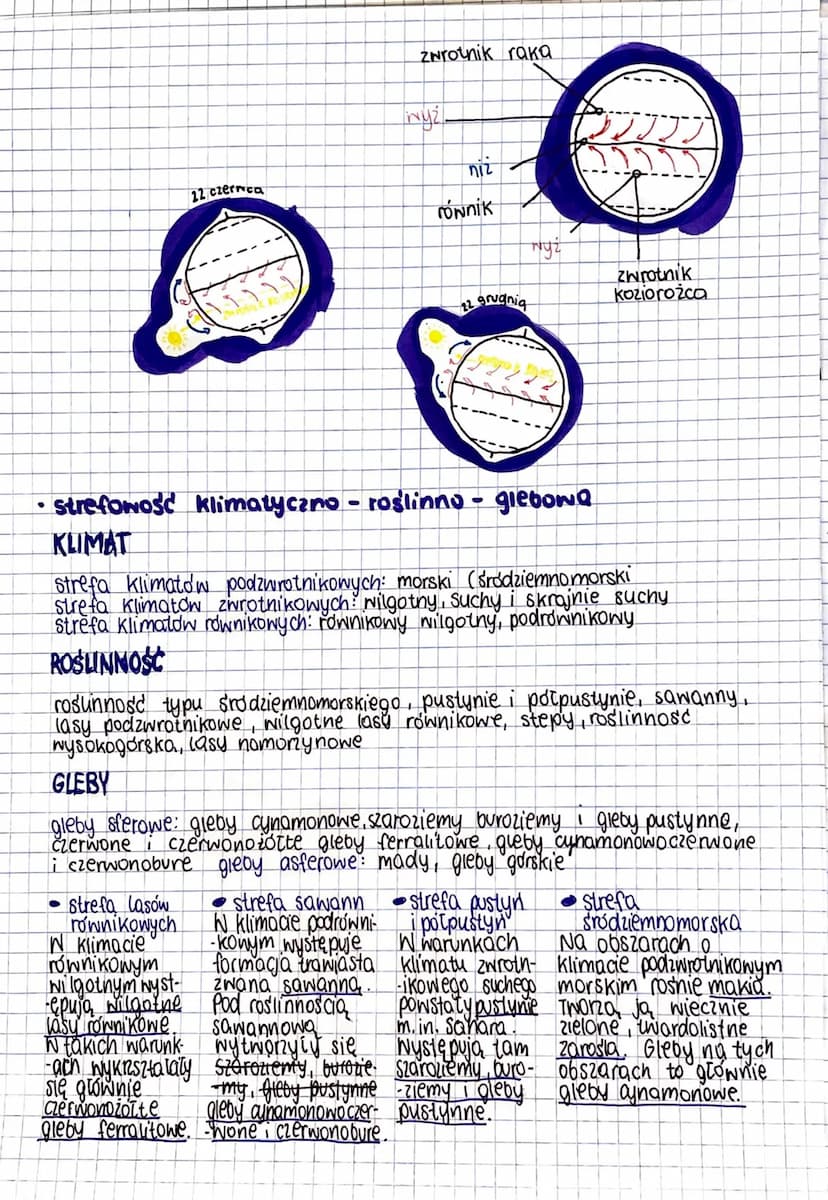 zwrotnik raka
wyż
niż
równik
wyż
zwrotnik
koziorożca
22 czerwca
22 grudnia
• strefowość klimatyczno - roślinno - glebowa
KLIMAT
strefa klimatów podzwrotnikowych: morski (śródziemnomorski
strefa klimatów zwrotnikowych: wilgotny, suchy i skrajnie suchy
strefa klimatów równikowych: równikowy wilgotny, podrównikowy
ROŚLINNOŚĆ
roślinność typu śródziemnomorskiego, pustynie i półpustynie, sawanny,
lasy podzwrotnikowe, wilgotne lasy równikowe, stepy, roślinność
wysokogórska, lasy namorzynowe
GLEBY
gleby sferowe: gleby cynamonowe, szaroziemy buroziemy i gleby pustynne,
czerwone i czerwonożółte gleby ferralitowe, gleby cynamonowoczerwone
i czerwonobure gleby asferowe: mady, gleby górskie
• strefa lasów
równikowych
W klimacie
równikowym
wilgotnym wyst-
-ępują wilgotne
lasy równikowe.
W takich warunk-
-ach wykrształały
się głównie
czerwonożółte
gleby ferralitowe.
• strefa sawann
W klimacie podrówni-
-konym występuje
formacja trawiasta
zwana sawanną.
Pod roślinnością
sawannową
wytworzyły się
szaroziemy, burozie-
-my, gleby pustynne
gleby cynamonowoczer-
-wone i czerwonobure.
• strefa pustyń
i półpustyń
W warunkach
klimatu zwrotn-
-ikowego suchego
powstały pustynie
m.in. Sahara.
Występują tam
szaroziemy, buro-
-ziemy i gleby
pustynne.
• strefa
śródziemnomorska
Na obszarach o
klimacie podzwrotnikowym
morskim rośnie makia.
Tworzą ją wiecznie
zielone, twardolistne
zarośla. Gleby na tych
obszarach to głównie
gleby cynamonowe.